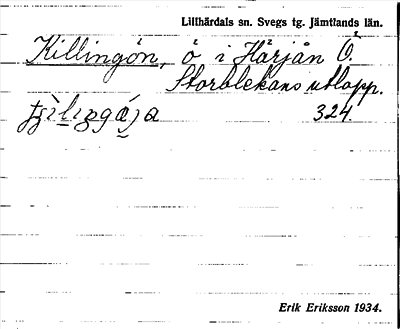 Lillhärdals sn. Svegs tg. Jämtlands län.
Killingön, ö i Härjån Ö.
Storblekans utlopp.
324.
Erik Eriksson 1934.